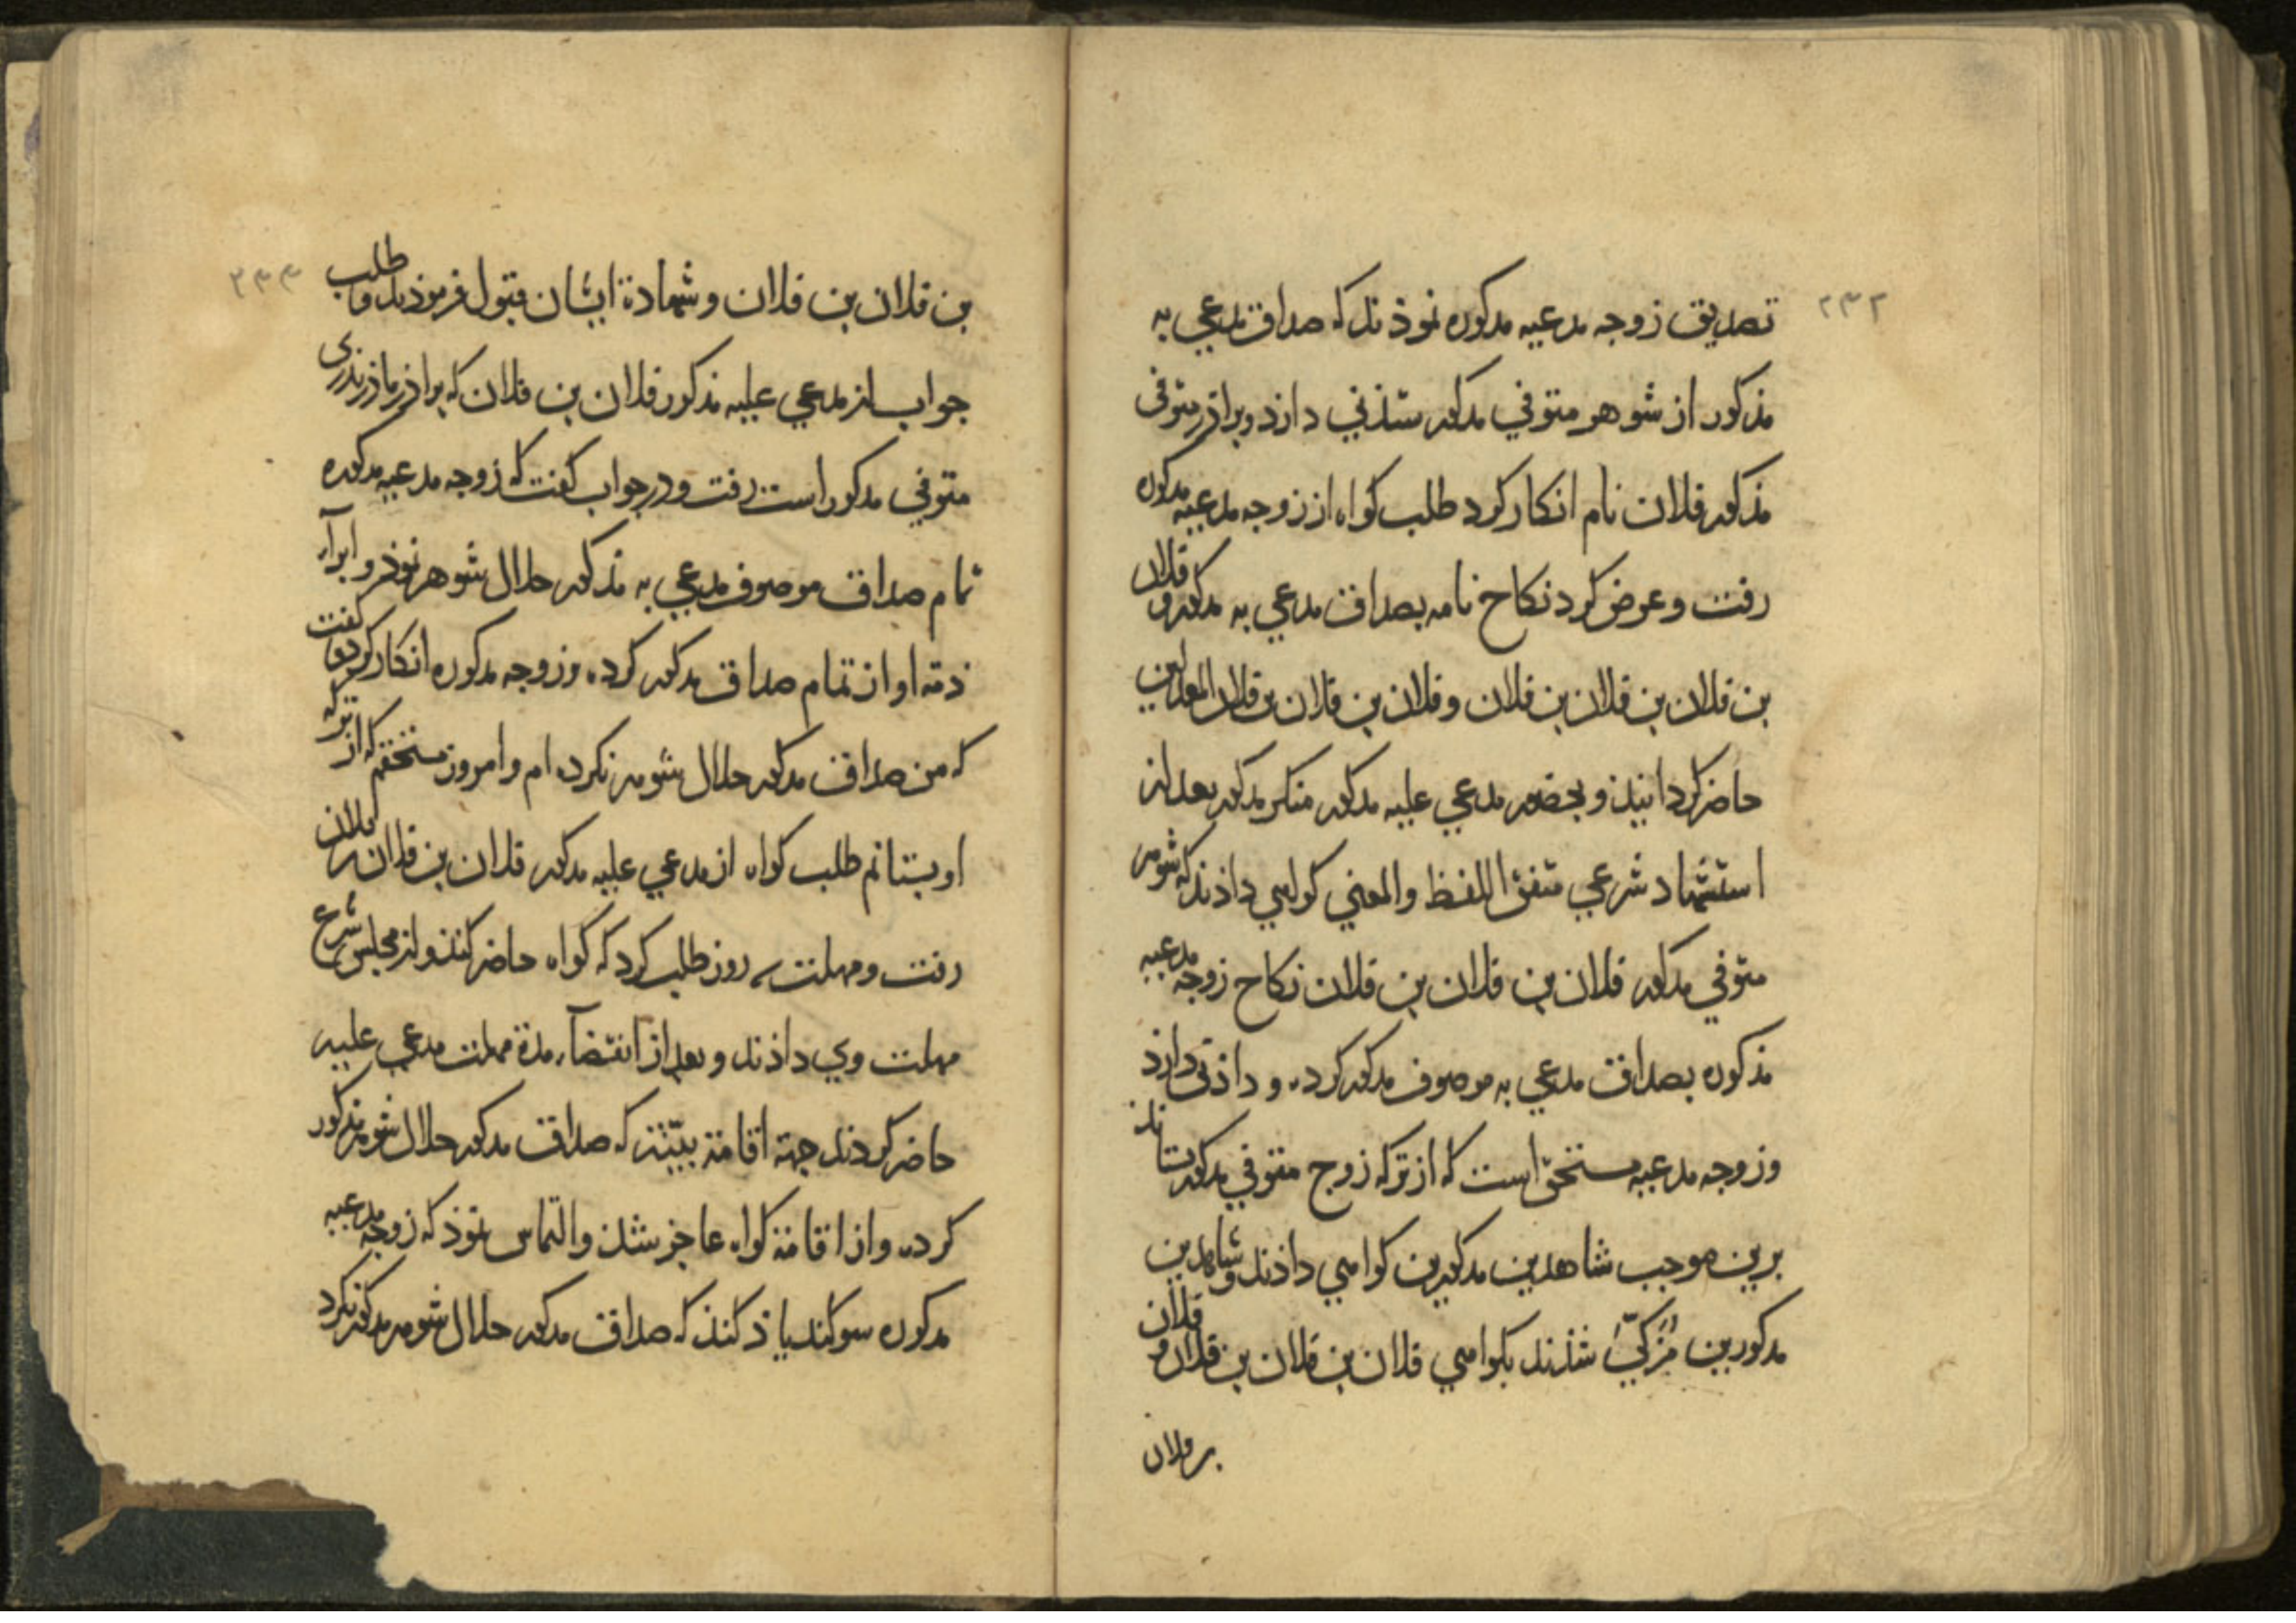 ۲۳۲
تصدیق زوجه مدعیه مدکوره نموذند که صداق مدعی به
مذکور از شوهر متوفی مدکور ستذنی دارد و براذر متوفی
مذکور فلان نام انکار کرد طلب کواه از زوجه مدعیه مدکوره
رفت و عرض کرد نکاح نامه بصداق مدعی به مدکور و فلان
بن فلان بن فلان بن فلان و فلان بن فلان بن فلان المعدلین
حاضر کردانیذ و بحضور مدعی علیه مدکور منکر مدکور بعد از
استشهاد شرعی متفق اللفظ والمعنی کواهی داذند که شوهر
متوفی مدکور فلان بن فلان بن فلان نکاح زوجه مدعیه
مذکوره بصداق مدعی به موصوف مدکور کرده و داذنی دارذ
وزوجه مدعیه مستحق است که از ترکه زوج متوفی مدکور بستاند
برین موجب شاهدین مدکورین کواهی داذند و شاهدین
مدکورین مزکی شذند بکواهی فلان بن فلان بن فلان و فلان
بن فلان
۲۳۳
بن فلان بن فلان و شهادة ایشان قبول فرموذند و طلب
جواب از مدعی علیه مذکور فلان بن فلان که براذر ماذر بذری
متوفی مدکور است رفت و در جواب کفت که زوجه مدعیه مدکوره
تمام صداق موصوف مدعی به مذکور حلال شوهر نموذ و ابرآء
ذمة او از تمام صداق مدکور کرده و زوجه مدکوره انکار کرد و کفت
که من صداق مدکور حلال شوهر نکرده ام و امروز مستحقم که از ترکه
او بستانم طلب کواه از مدعی علیه مدکور فلان بن فلان بن فلان
رفت و مهلت سه روز طلب کرد که کواه حاضر کنذ و از مجلس شرع
مهلت وی داذند و بعد از انقضآء مدة مهلت مدعی علیه
حاضر کردند جهة اقامة بیّنة که صداق مدکور حلال شوهر مذکور
کرده و از اقامة کواه عاجز شذ و التماس نموذ که زوجه مدعیه
مدکوره سوکند یاذ کنذ که صداق مدکور حلال شوهر مدکور نکرد